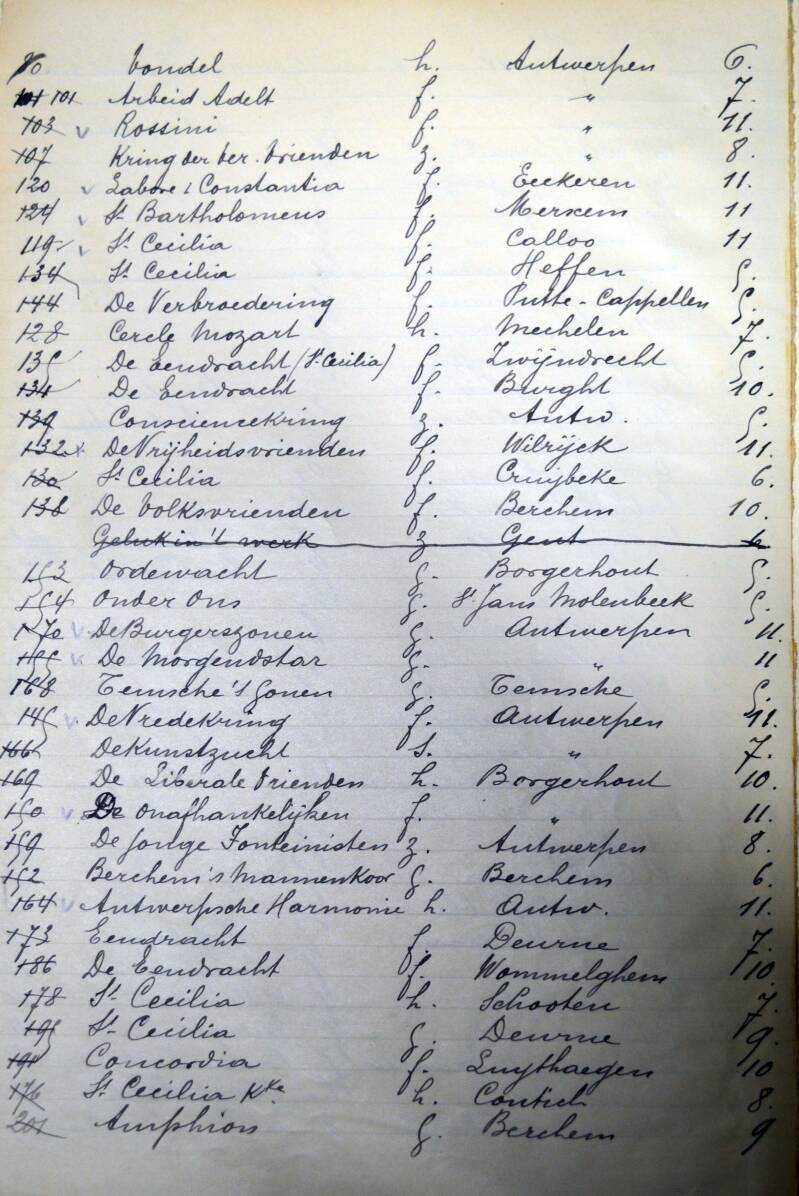 70 Vondel h. Antwerpen 6.
101 101 Arbeid Adelt f. " 7.
103 v Rossini f. " 11.
107 Kring der ver. Vrienden z. " 8.
120 v Labore & Constantia f. Eeckeren 11.
124 v St Bartholomeus f. Merxem 11
119 v St Cecilia f. Calloo 11
134 St Cecilia f. Heffen 5.
144 De Verbroedering f. Putte-Cappellen 5.
128 Cercle Mozart h. Mechelen 7.
135 De Eendracht (St Cecilia) f. Zwijndrecht 5.
134 De Eendracht f. Burght 10.
139 Consciencekring z. Antw. 5.
132 x De Vrijheidsvrienden f. Wilrijck 11.
130 St Cecilia f. Cruybeke 6.
138 De Volksvrienden f. Berchem 10.
Geluk in 't werk z. Gent 6
153 Ordewacht g. Borgerhout 5.
154 Onder Ons g. St Jans Molenbeek 5.
170 v De Burgerszonen g. Antwerpen 11.
155 v De Morgendstar g. " 11
168 Temsche's Zonen g. Temsche 5.
145 v De Vredekring f. Antwerpen 11.
166 De Kunstzucht s. " 7.
169 De Liberale Vrienden h. Borgerhout 10.
150 v De Onafhankelijken f. " 11.
159 De Jonge Fonteinisten z. Antwerpen 8.
152 Berchem's Mannenkoor g. Berchem 6.
164 v Antwerpsche Harmonie h. Antw. 11.
173 Eendracht f. Deurne 7.
186 De Eendracht f. Wommelghem 10
178 St Cecilia h. Schooten 7.
195 St Cecilia g. Deurne 9.
191 Concordia f. Luythaegen 10
176 St Cecilia Kke h. Contich 8.
201 Amphion g. Berchem 9